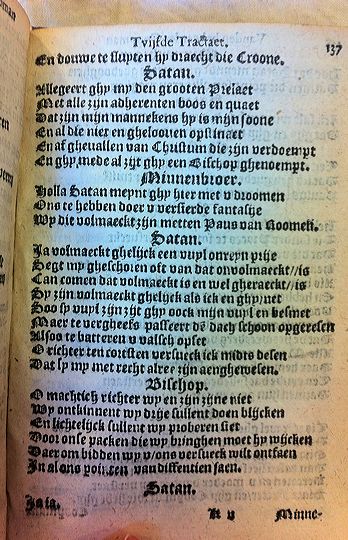 Tvijfde Tractaet. 137
En douwe te sluyten hy draecht die Croone.
Satan.
Allegeert ghy my den grooten Prelaet
Met alle zijn adherenten boos en quaet
Dat zijn mijn mannekens hy is mijn soone
En al die niet en gheloouen opstinaet
En af gheuallen van Christum die zijn verdoempt
En ghy, mede al zijt ghy een Bisschop ghenoempt.
Minnenbroer.
Holla Satan meynt ghy hier met v droomen
Ons te hebben doer v versierde fantasije
Wy die volmaeckt zijn metten Paus van Roomen.
Satan.
Ja volmaeckt ghelijck een vuyl onreyn prije
Segt my gheschoren oft van dat onvolmaeckt//is
Can comen dat volmaeckt is en wel gheraeckt//is
Ghy zijn volmaeckt ghelijck als ick en ghy//net
Soo sy vuyl zijn zijt ghy oock mijn vuyl en besmet
Maer te vergheefs passeert dē dach schoon opgeresen
Alsoo te batteren v valsch opset
O richter ten cortsten versueck ick midts desen
Dat sy my met recht alree zijn aenghewesen.
Bisschop.
O machtich richter wy en zijn zijne niet
Wy ontkinnent wy drije sullent doen blijcken
En lichtelijck sullent wy proberen siet
Door onse packen die wy bringhen moet hy wijcken
Daer om bidden wy v/ons versueck wilt ontfaen
In al ons pointen van differentien saen.
Satan.
Ja ia.
K v Minne-